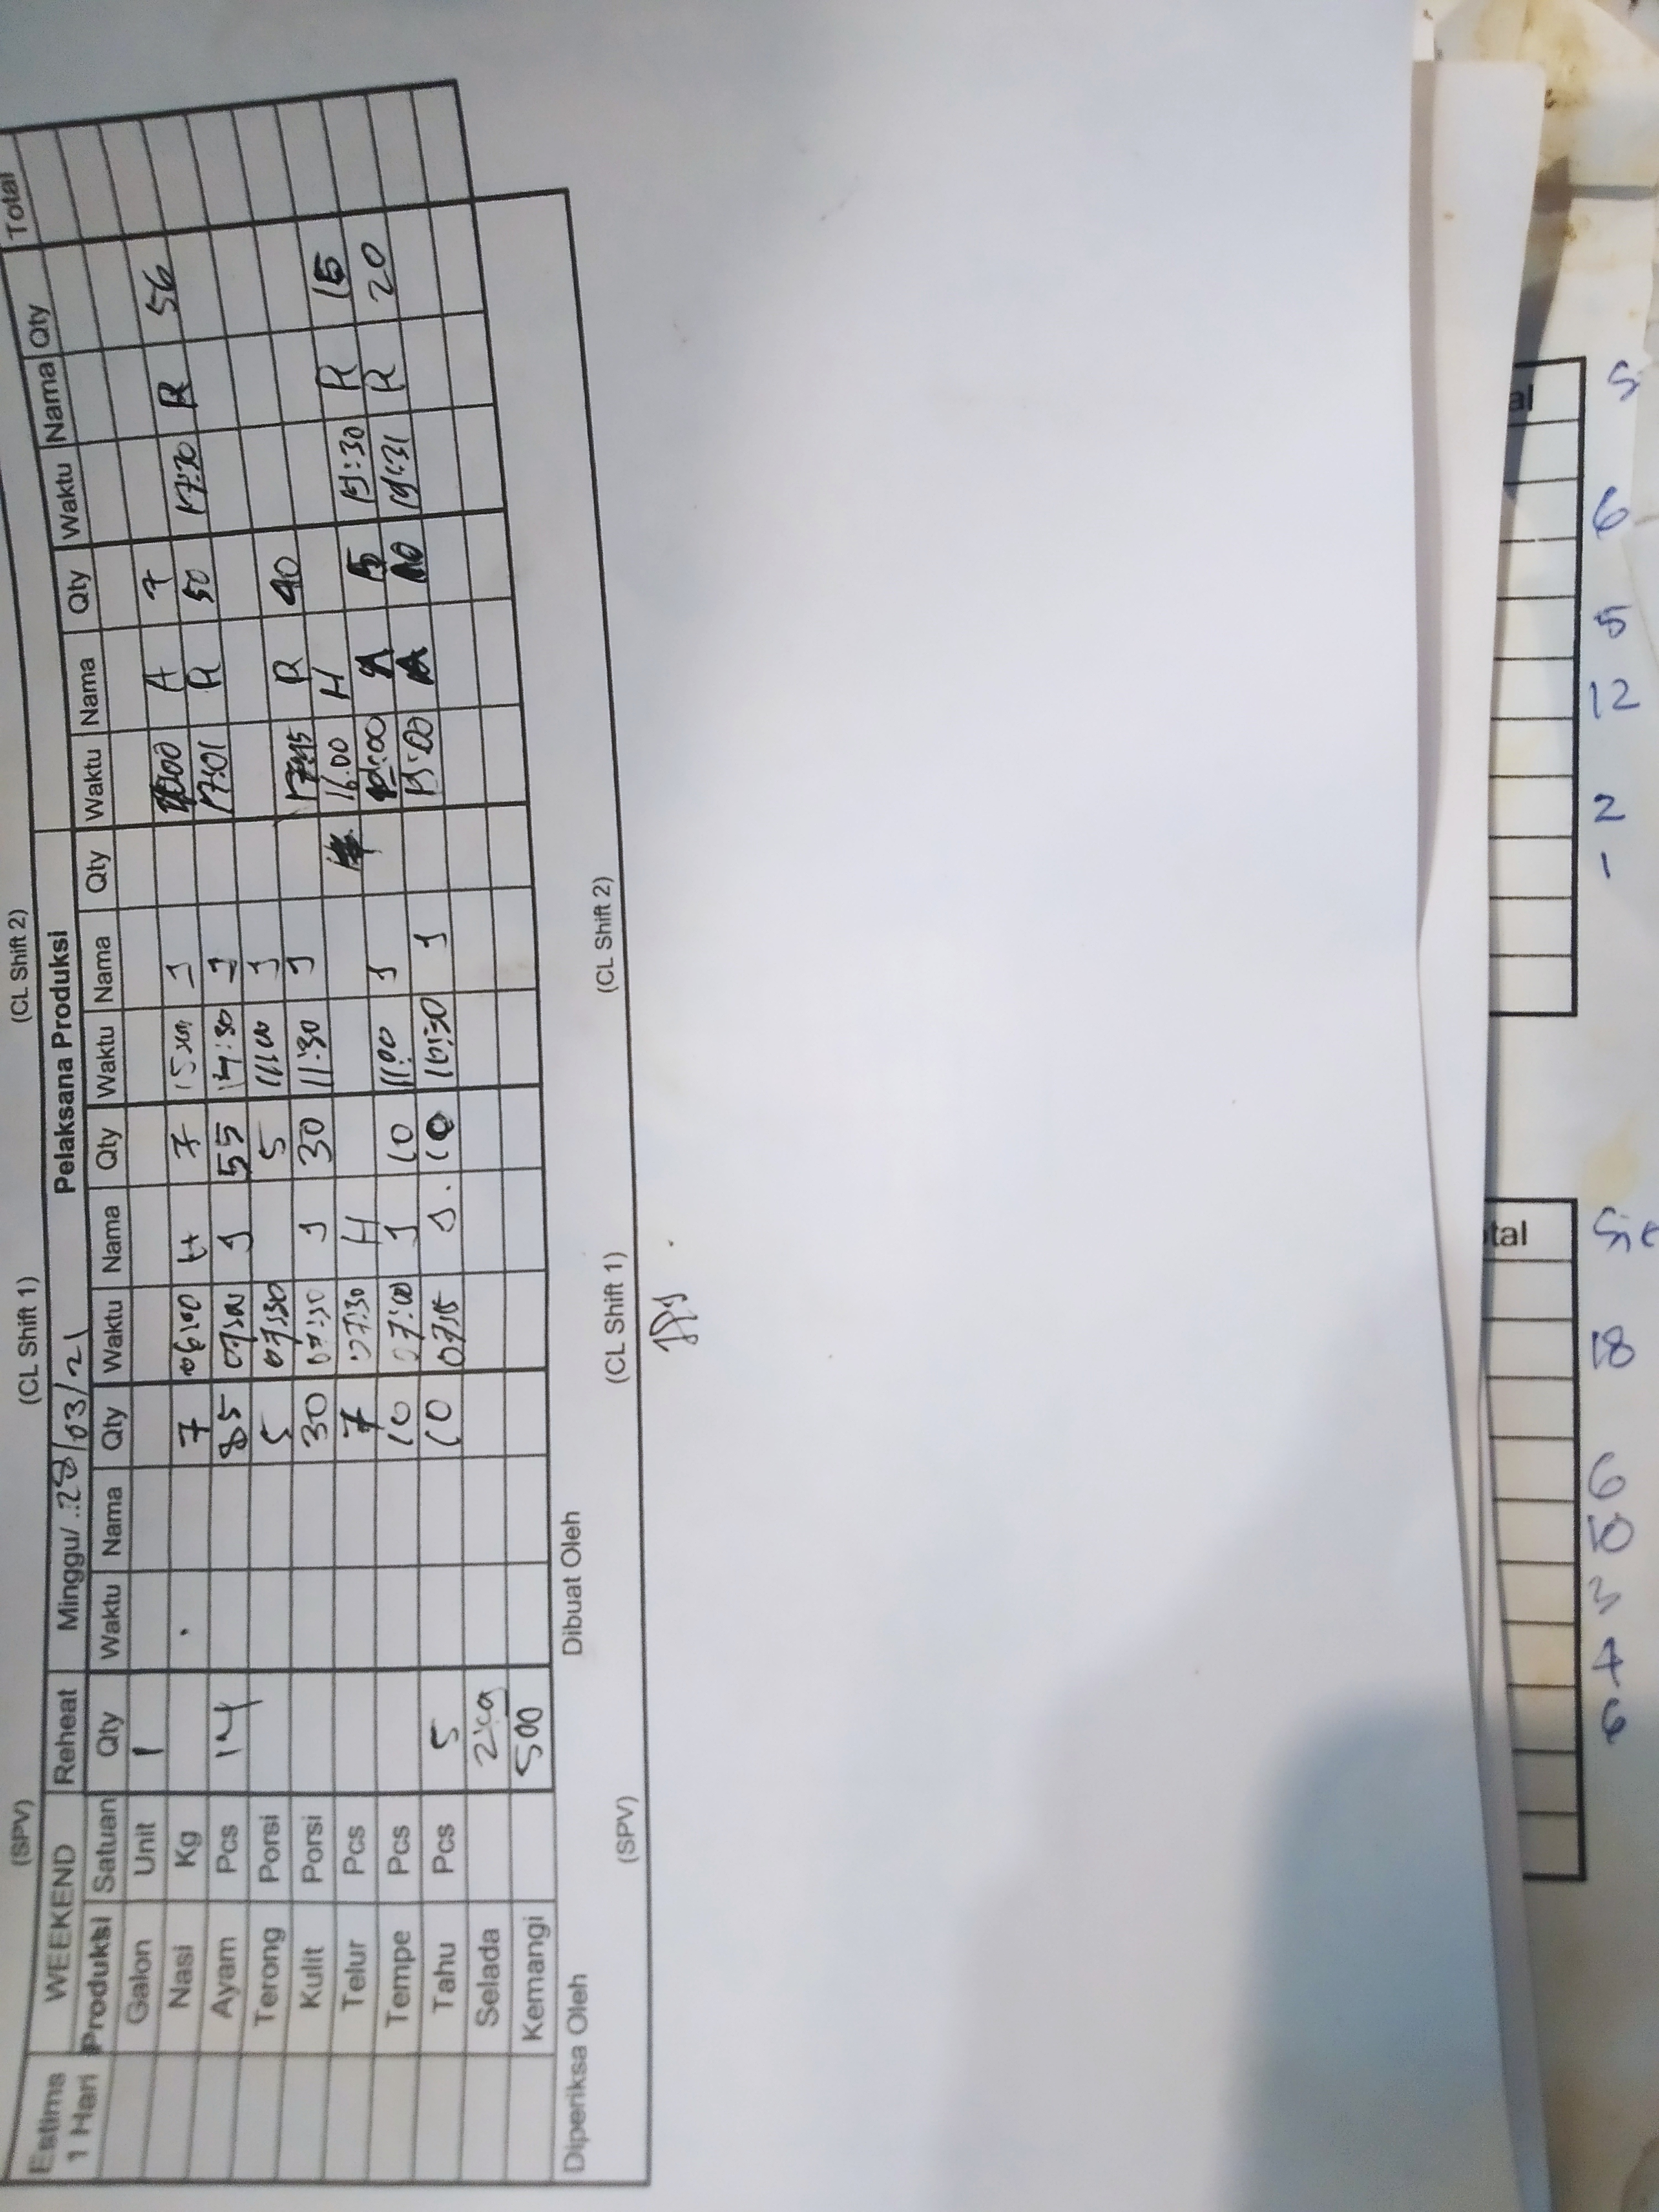 (SPV) (CL Shift 1) (CL Shift 2)
Estima WEEKEND Reheat Minggu/ 28/03/21 Pelaksana Produksi
1 Hari Produksi Satuan Qty Waktu Nama Qty Waktu Nama Qty Waktu Nama Qty Waktu Nama Qty Waktu Nama Qty Total
Galon Unit 1
Nasi Kg 7 06:00 H 7 15:00 J A 7
Ayam Pcs 14 85 07:00 J 55 14:30 J 17:01 R 50 17:30 R 56
Terong Porsi 5 07:30 5 11:00 J
Kulit Porsi 30 07:30 J 30 11:30 J 17:45 R 40
Telur Pcs 7 07:30 H 16.00 H
Tempe Pcs 10 07:00 J 10 11:00 J 15 19:30 R 15
Tahu Pcs 5 10 07:15 J. 10 J 19:31 R 20
Selada
Kemangi 500
Diperiksa Oleh Dibuat Oleh
(SPV) (CL Shift 1) (CL Shift 2)
tal
18
6
al
6
5
12
2